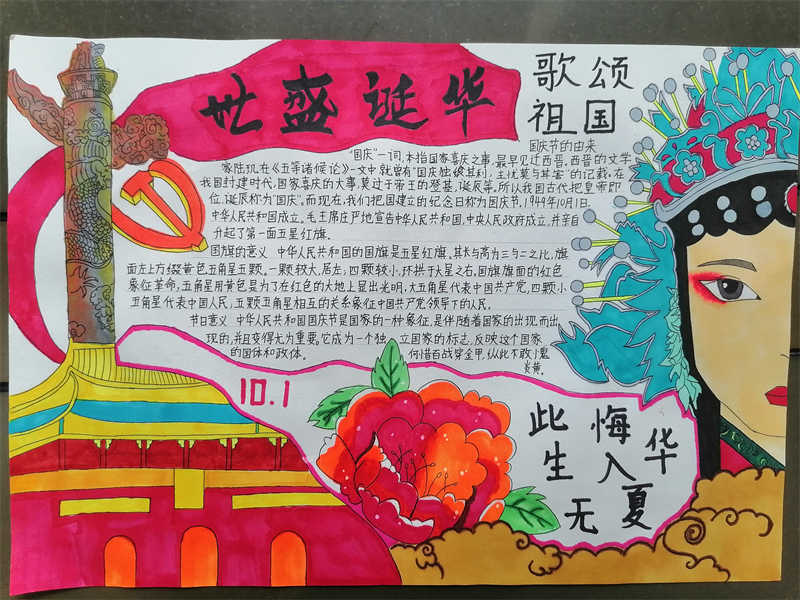 世盛诞华
歌颂
祖国
国庆节的由来
"国庆"一词,本指国家喜庆之事,最早见过西晋。西晋的文学
家陆机在《五等诸候论》一文中就曾有"国庆独飨其利,主忧莫与其害"的记载,在
我国封建时代,国家喜庆的大事,莫过于帝王的登基,诞辰等。所以我国古代把皇帝即
位,诞辰称为"国庆"。而现在,我们把国建立的纪念日称为国庆节。1949年10月1日,
中华人民共和国成立。毛主席庄严地宣告中华人民共和国,中央人民政府成立,并亲自
升起了第一面五星红旗。
国旗的意义 中华人民共和国的国旗是五星红旗。其长与高为三与二之比,旗
面左上方缀黄色五角星五颗。一颗较大,居左;四颗较小,环拱于大星之右。国旗旗面的红色
象征革命,五角星用黄色是为了在红色的大地上显出光明,大五角星代表中国共产党,四颗小
五角星代表中国人民,五颗五角星相互的关系象征中国共产党领导下的人民。
节日意义 中华人民共和国国庆节是国家的一种象征,是伴随着国家的出现而出
现的,并且变得尤为重要。它成为一个独立国家的标志,反映这个国家
的国体和政体。 何惜百战穿金甲,纵此不敢小觑
炎黄。
10.1
此生无悔入华夏